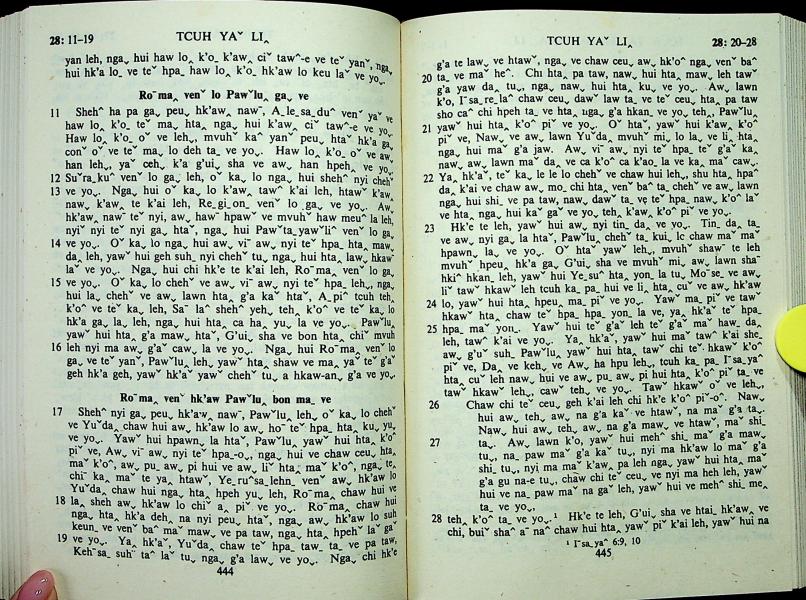 28: 11–19 TCUH YAˇ LIꞈ
yan leh, nga˯ hui haw loꞈ k'oꞈ k'awꞈ ciˇ taw^-e ve teˇ yanˇ, nga˯
hui hk'a lo˯ ve teˇ hpaꞈ haw loꞈ k'oꞈ hk'aw lo keu laˇ ve yo˯.
Roˉmaꞈ venˇ lo Pawˇlu˯ ga˯ ve
11 Shehˆ ha pa ga˯ peu˯ hk'aw˯ nawˉ, A˯le˯sa˯duˆ venˇ yaˇ ve
haw loꞈ k'oꞈ teˇ ma˯ hta˯ nga˯ hui k'awꞈ ciˇ tawˆ-e ve yo˯.
Haw loꞈ k'oꞈ oˇ ve leh˯ mvuhˇ kaˆ yanˇ peu˯ htaˇ hk'a ga˯
conˇ oˇ ve teˇ ma˯ lo deh ta˯ ve yo˯. Haw loꞈ k'oꞈ oˇ ve aw˯
han leh˯ yaˇ ceh˯ k'a g'ui˯ sha ve aw˯ han hpeh˯ ve yo˯
12 Suˇra˯kuˆ venˇ lo ga˯ leh, oˇ ka˯ lo nga˯ hui shehˆ nyi chehˇ
13 ve yo˯. Nga˯ hui oˇ ka˯ lo k'aw˯ tawˆ k'ai leh, htawˇ k'aw˯
naw˯ k'aw˯ te k'ai leh, Re˯gi˯on˯ venˇ lo ga˯ ve yo˯. Aw˯
hk'aw˯ nawˉ teˇ nyi, aw˯ hawˉ hpawˇ ve mvuhˇ haw meuˆ la leh,
nyiˇ nyi teˇ nyi ga˯ htaˇ, nga˯ hui Pawˇta˯yawˇliˇ venˇ lo ga˯
14 ve yo˯. Oˇ ka˯ lo nga˯ hui aw˯ viˉ aw˯ nyi teˇ hpa˯ hta˯ maw˯
da˯ leh, yawˇ hui geh suhˉ nyi chehˇ tu˯ nga˯ hui hta˯ law˯ hkawˇ
laˇ ve yo˯. Nga˯ hui chi hk'e te k'ai leh, Roˉma˯ venˇ lo ga˯
15 ve yo˯. Oˇ ka˯ lo chehˇ ve aw˯ viˉ aw˯ nyi teˇ hpa˯ leh˯ nga˯
hui la˯ chehˇ ve aw˯ lawn hta˯ g'a kaˇ htaˇ, A˯piˆ tcuh teh˯
k'oˆ ve teˇ ka˯ leh, Saˉ laˆ shehˆ yeh˯ teh˯ k'oˆ ve teˇ ka˯ lo
hk'a ga˯ la˯ leh, nga˯ hui hta˯ ca ha˯ yu˯ la ve yo˯. Pawˇlu˯
yawˇ hui hta˯ g'a maw˯ htaˇ, G'ui˯ sha ve bon hta˯ chiˇ mvuh
16 leh nyi ma aw˯ g'aˇ caw˯ la ve yo˯. Nga˯ hui Roˉma˯ venˇ lo
ga˯ ve teˇ yanˇ, Pawˇlu˯ leh˯ yawˇ hta˯ shaw ve ma˯ yaˇ teˇ g'aˇ
geh hk'a geh, yawˇ hk'aˇ yawˇ chehˇ tu˯ a hkaw-an˯ g'a ve yo˯.
Roˉma˯ venˇ hk'aw Pawˇlu˯ bon ma˯ ve
17 Shehˆ nyi ga˯ peu˯ hk'aw˯ nawˉ, Pawˇlu˯ leh˯ oˇ ka˯ lo chehˇ
ve Yuˇda˯ chaw hui aw˯ hk'aw lo aw˯ hoˉ teˇ hpa˯ hta˯ ku˯ yu˯
ve yo˯. Yawˇ hui hpawn˯ la htaˇ, Pawˇlu˯ yawˇ hui hta˯ k'oˆ
piˇ ve, Aw˯ viˉ aw˯ nyi teˇ hpa˯-o˯, nga˯ hui ve chaw ceu˯ hta˯
maˇ k'oˆ, aw˯ pu˯ aw˯ pi hui ve aw˯ liˇ hta˯ maˇ k'oˆ, nga˯ te˯
chiˉ ka˯ maˇ te ya˯ htawˇ, Ye˯ruˆsa˯lehn˯ venˇ aw˯ hk'aw lo
Yuˇda˯ chaw hui nga˯ hta˯ hpeh yu leh, Roˉma˯ chaw hui ve
18 la˯ sheh aw˯ hk'aw lo chiˇ a˯ piˇ ve yo˯. Roˉma˯ chaw hui
nga˯ hta˯ hk'a deh˯ na nyi peu˯ htaˇ, nga˯ aw˯ hk'aw lo suh
keun˯ ve venˇ baˆ maˇ maw˯ ve pa taw, nga˯ hta˯ hpehˇ laˇ gaˇ
19 ve yo˯. Ya˯ hk'aˇ, Yuˇda˯ chaw teˇ hpa˯ taw˯ ta˯ ve pa taw,
Kehˉsa˯ suhˉ taˆ laˇ tu˯ nga˯ g'a law˯ ve yo˯. Nga˯ chi hk'e
444
TCUH YAˇ LIꞈ 28: 20–28
g'a te law˯ ve htawˇ, nga˯ ve chaw ceu˯ aw˯ hk'oˆ nga˯ venˇ baˆ
20 ta˯ ve maˇ heˆ. Chi hta˯ pa taw, naw˯ hui hta˯ maw˯ leh taw
g'a yaw da˯ tu˯, nga˯ naw˯ hui hta˯ ku˯ ve yo˯. Aw˯ lawn
k'o, Iˉsa˯re˯laˆ chaw ceu˯ dawˇ law ta˯ ve teˇ ceu˯ hta˯ pa taw
sho caˆ chi hpeh ta˯ ve hta˯ nga˯ g'a hkan˯ ve yo˯ teh˯ Pawˇlu˯
21 yawˇ hui hta˯ k'oˆ piˇ ve yo˯. Oˇ htaˇ, yawˇ hui k'aw˯ k'oˆ
piˇ ve, Naw˯ ve aw˯ lawn Yuˇda˯ mvuhˇ mi˯ lo la˯ ve li˯ hta˯
nga˯ hui maˇ g'a jaw. Aw˯ viˉ aw˯ nyi teˇ hpa˯ teˇ g'aˇ ka˯
naw˯ aw˯ lawn maˇ da˯ ve ca k'oˆ ca k'ao˯ la ve ka˯ maˇ caw˯.
22 Ya˯ hk'aˇ, teˇ ka˯ le le lo chehˇ ve chaw hui leh˯ shu hta˯ hpaˆ
da˯ k'ai ve chaw aw˯ mo˯ chi hta˯ venˇ baˆ ta˯ chehˇ ve aw˯ lawn
nga˯ hui shi˯ ve pa taw, naw˯ dawˇ ta˯ ve teˇ hpa˯ naw˯ k'oˆ laˇ
ve hta˯ nga˯ hui kaˇ gaˇ ve yo˯ teh˯ k'aw˯ k'oˆ piˇ ve yo˯.
23 Hk'e te leh, yawˇ hui aw˯ nyi tin˯ da˯ ve yo˯. Tin˯ da˯ ta˯
ve aw˯ nyi ga˯ la htaˇ, Pawˇlu˯ chehˇ ta˯ kui˯ lo chaw maˇ maˇ
hpawn˯ la˯ ve yo˯. Oˇ htaˇ yawˇ leh˯ mvuhˇ shawˉ te leh
mvuhˇ hpeu˯ hk'a ga˯ G'ui˯ sha ve mvuhˇ mi˯ aw˯ lawn shaˉ
hkiˆ hkan˯ leh, yawˇ hui Ye˯suˆ hta˯ yon˯ la tu˯ Moˉse˯ ve aw˯
liˇ tawˇ hkawˇ leh tcuh ka˯ pa˯ hui ve li˯ hta˯ cuˇ ve aw˯ hk'aw
24 lo, yawˇ hui hta˯ hpeu˯ ma˯ piˇ ve yo˯. Yawˇ ma˯ piˇ ve taw
hkawˇ hta˯ chaw teˇ hpa˯ hpa˯ yon˯ la ve, ya˯ hk'aˇ teˇ hpa˯
25 hpa˯ maˇ yon˯. Yawˇ hui teˇ g'aˇ leh teˇ g'aˇ maˇ haw˯ da˯
leh, tawˆ k'ai ve yo˯. Ya˯ hk'aˇ, yawˇ hui maˇ tawˆ k'ai she˯
aw˯ g'uˇ suh˯ Pawˇlu˯ yawˇ hui hta˯ tawˇ chi teˇ hkawˇ k'oˆ
piˇ ve, Da˯ ve keh˯ ve Aw˯ ha hpu leh˯ tcuh ka˯ pa˯ Iˉsa˯yaˆ
hta˯ cuˇ leh naw˯ hui ve aw˯ pu˯ aw˯ pi hui hta˯ k'oˆ piˇ ta˯ ve
tawˇ hkawˇ leh˯ caw˯ teh˯ ve yo˯. Tawˇ hkawˇ oˇ ve leh˯
26 Chaw chi teˇ ceu˯ geh k'ai leh chi hk'e k'oˆ piˇ-oˆ. Naw˯
hui aw˯ teh˯ aw˯ na g'a kaˇ ve htawˇ, na maˇ g'a ta˯.
Naw˯ hui aw˯ teh˯ aw˯ na g'a maw˯ ve htawˇ, maˇ shi˯
27 ta˯. Aw˯ lawn k'o, yawˇ hui mehˆ shi˯ maˇ g'a maw˯
tu˯ na˯ paw maˇ g'a kaˇ tu˯ nyi ma hk'aw lo maˇ g'a
shi˯ tu˯ nyi ma maˇ k'aw˯ pa leh nga˯ yawˇ hui hta˯ maˇ
g'a gu na-e tu˯ chaw chi teˇ ceu˯ ve nyi ma heh leh, yawˇ
hui ve na˯ paw maˇ na gaˇ leh, yawˇ hui ve mehˆ shi˯ me˯
ta˯ ve yo˯.
28 teh˯ k'oˆ ta˯ ve yo˯.¹ Hk'e te leh, G'ui˯ sha ve htai˯ hk'aw˯ ve
chi, buiˇ shaˆ aˉ naˆ chaw hui hta˯ yawˇ piˇ k'ai leh, yawˇ hui na
¹ Iˉsa˯yaˆ 6:9, 10
445